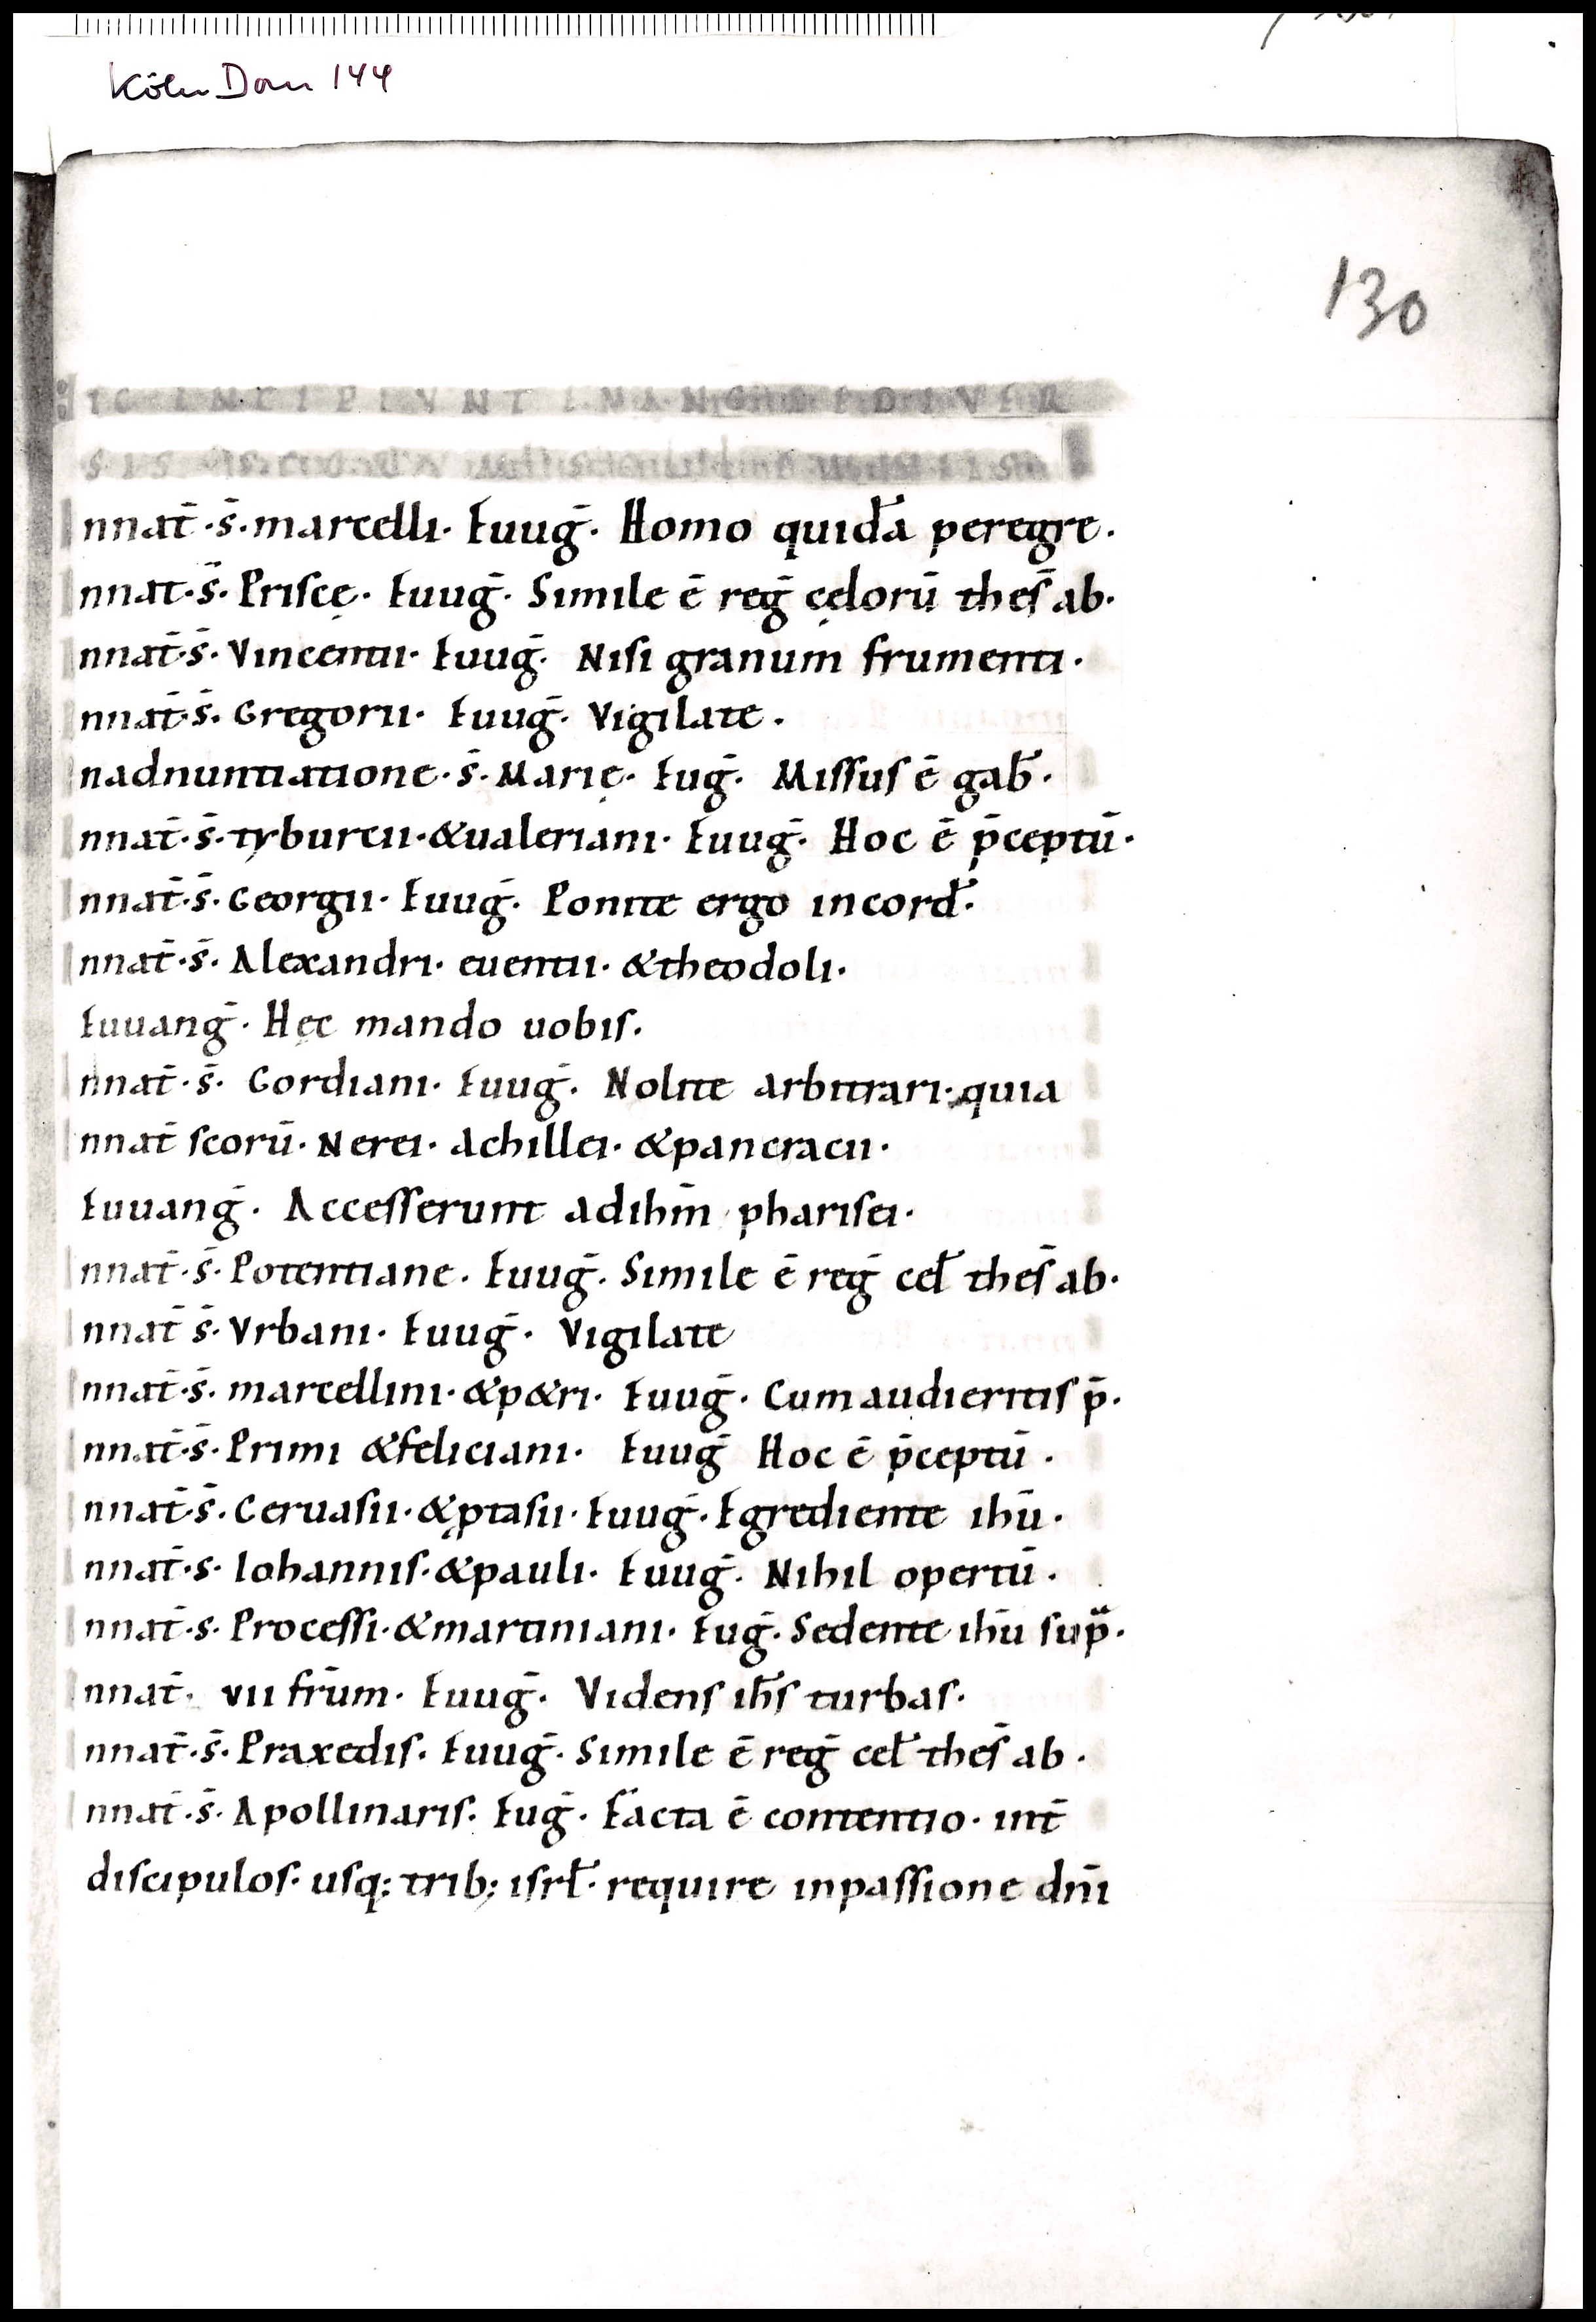 Köln Dom 144
130
IC INCIPIVNT EVANGELIA DIVER
SIS
Innat̄·s̄·marcelli· Euuḡ· Homo quidā peregre·
Innat·s̄· Priscę· Euuḡ· Simile ē reḡ cęlorū thes̄ ab·
Innat̄·s̄· Vincentii· Euuḡ· Nisi granum frumenti·
Innat̄·s̄· Gregorii· Euuḡ· Vigilate·
Inadnuntiatione·s̄·Marię· Euḡ· Missus ē gab̄·
Innat̄·s̄·tyburcii·&ualeriani· Euuḡ· Hoc ē p̄ceptū·
Innat̄·s̄· Georgii· Euuḡ· Ponite ergo incord̄·
Innat̄·s̄· Alexandri· euentii· &theodoli·
Euuanḡ· Hęc mando uobis·
Innat̄·s̄· Gordiani· Euuḡ· Nolite arbitrari· quia
Innat̄ scorū· Nerei· Achillei· &pancracii·
Euuanḡ· Accesserunt adihm̄ pharisei·
Innat̄·s̄·Potentiane· Euuḡ· Simile ē reḡ cel̄ thes̄ ab·
Innat̄ s̄·Vrbani· Euuḡ· Vigilate
Innat̄·s̄· marcellini·&p&ri· Euuḡ· Cum audieritis p̄·
Innat̄·s̄·Primi &feliciani· Euuḡ Hoc ē p̄ceptū·
Innat̄·s̄·Geruasii·&ꝓtasii·Euuḡ·Egrediente ihū·
Innat̄·s· Iohannis·&pauli· Euuḡ· Nihil opertū·
Innat̄·s· Processi·&martiniani· Euḡ· Sedente ihū sup̄·
Innat̄· vii fr̄um· Euuḡ· Videns ih̄s turbas·
Innat̄·s̄·Praxedis· Euuḡ· Simile ē reḡ cel̄ thes̄ ab·
Innat̄·s̄·Apollinaris· Euḡ· Facta ē contentio· int̄
discipulos· usq; trib; isrl̄· require inpassione dn̄i